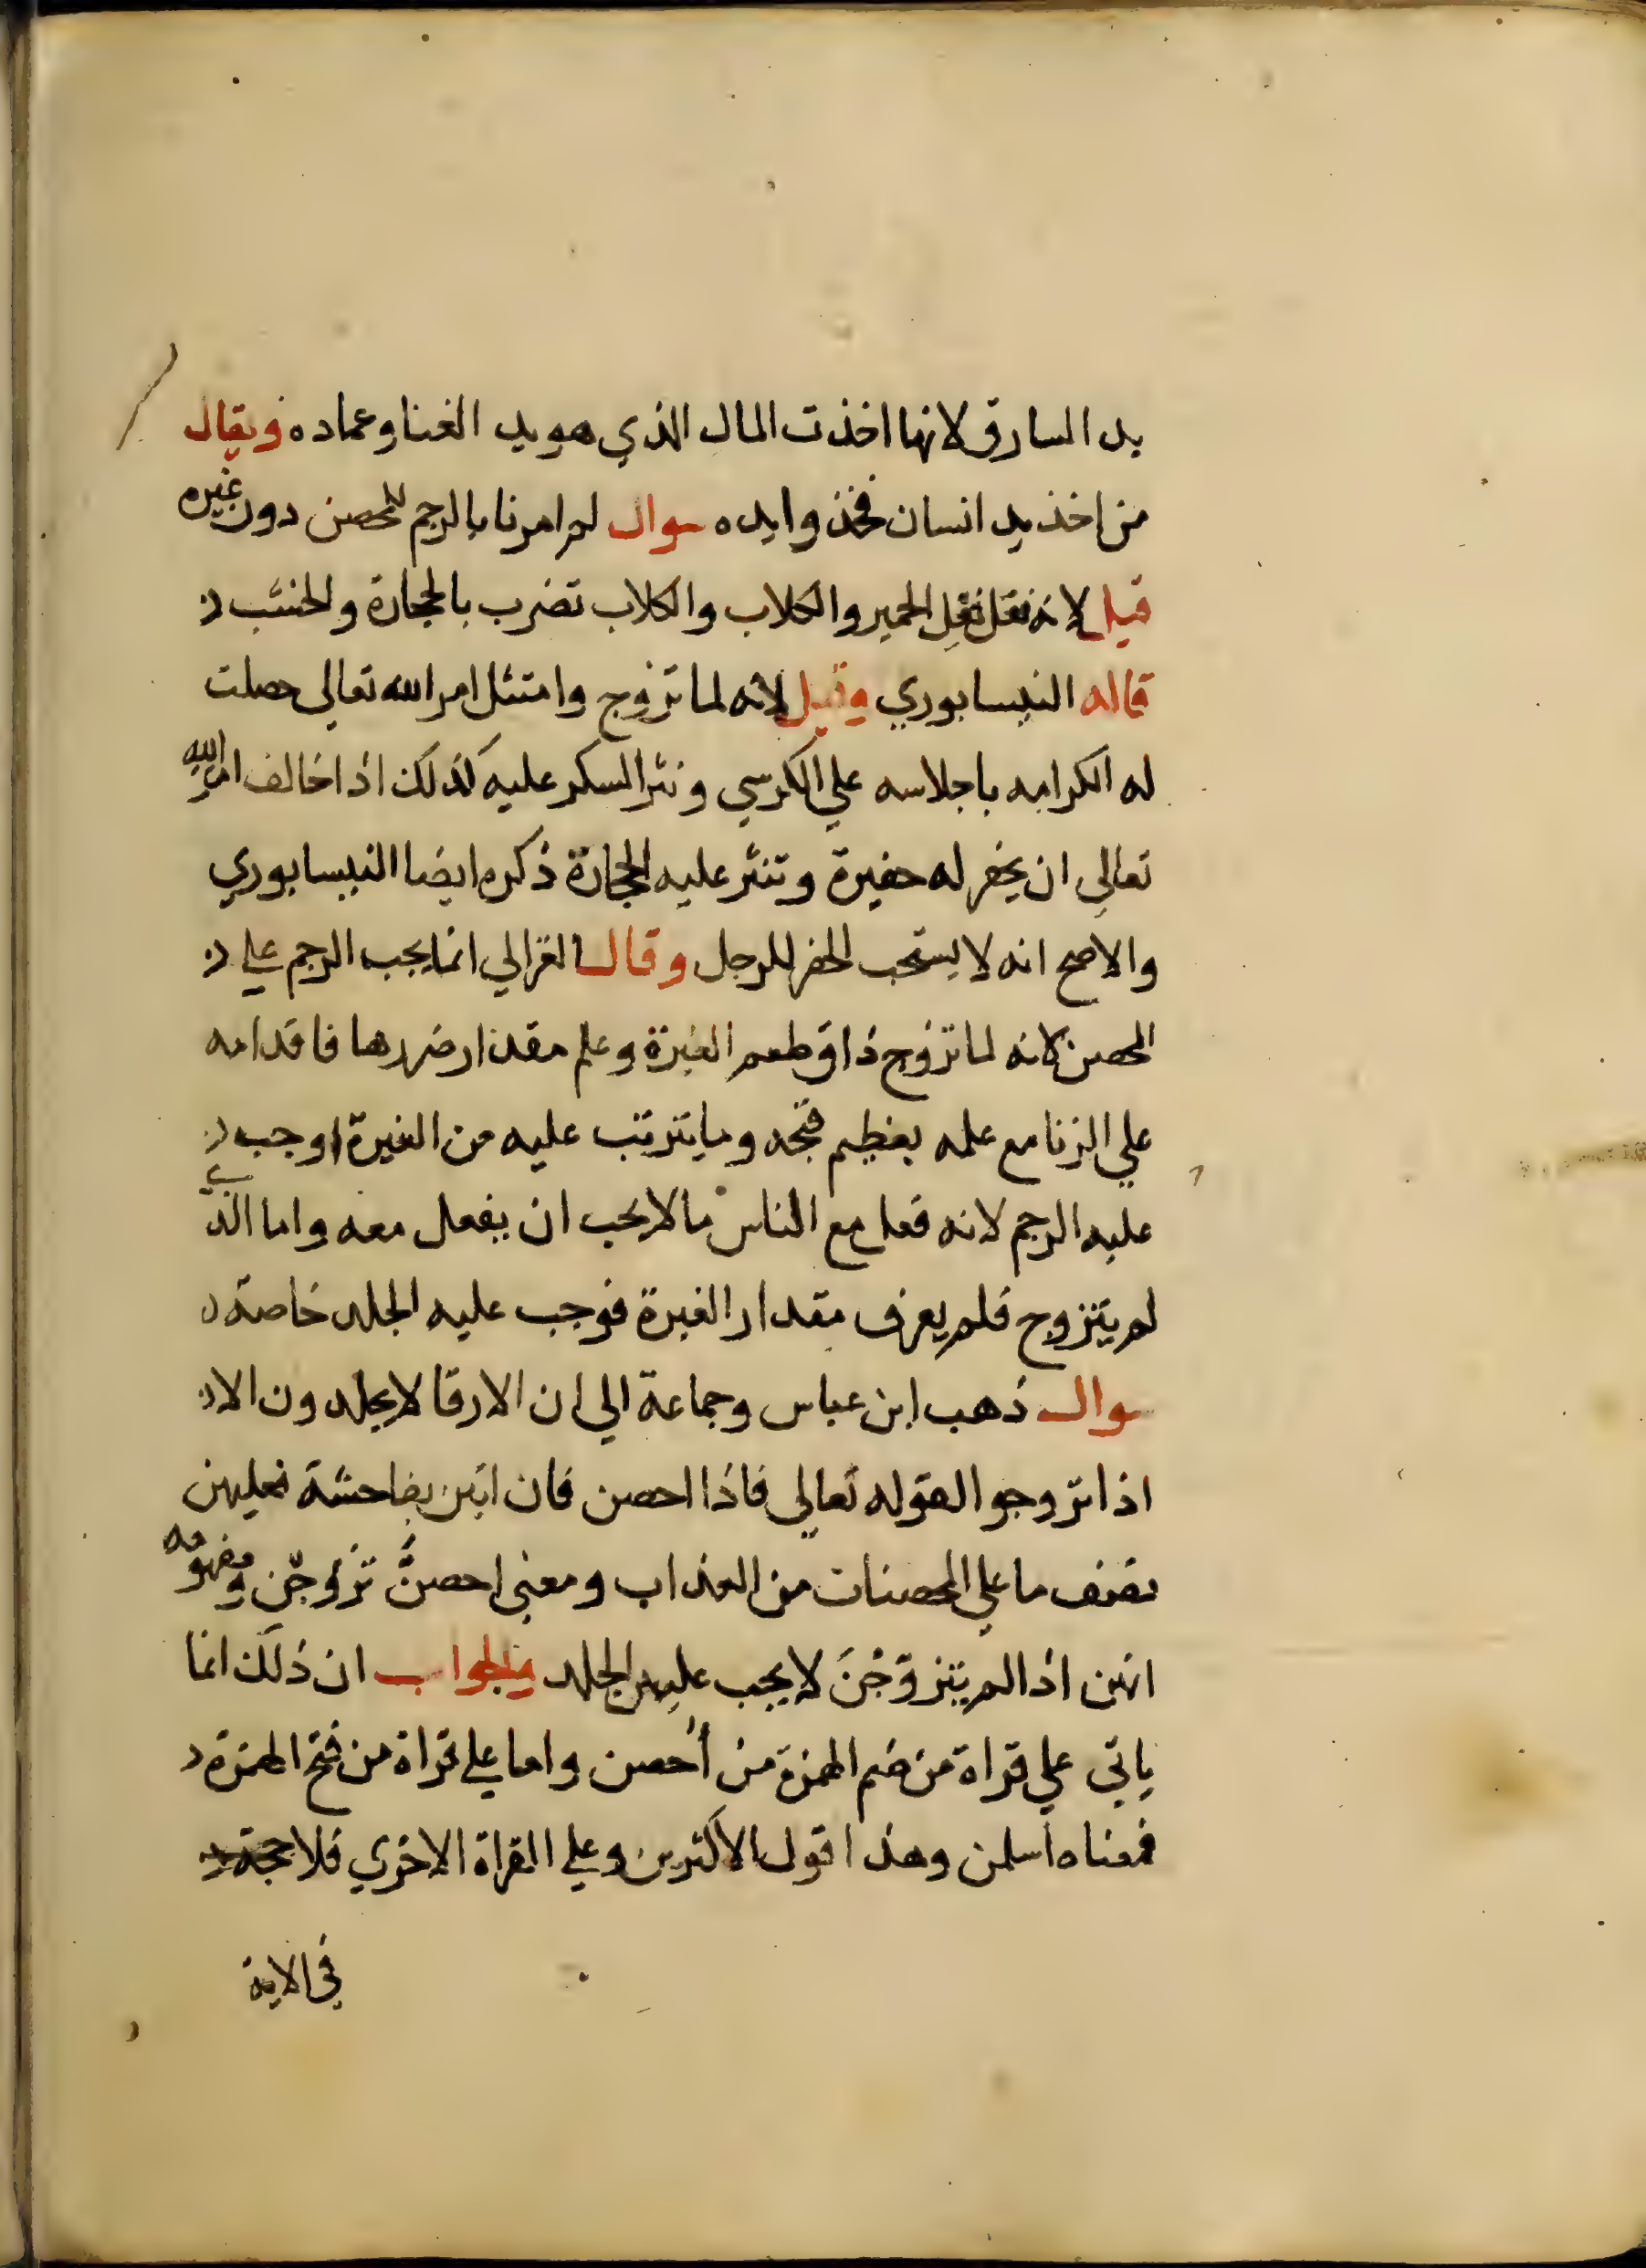 يد السارق لانها اخذت المال الذي هو يد الغنا وعماده ويقال
من اخذ يد انسان فخذوا يده سوال لم امرنا بالرجم للمحصن دون غيره
قيل لانه فعل فعل الحمير والكلاب والكلاب تضرب بالحجارة والخشب
قاله النيسابوري وقيل لانه لما تزوج وامتثل امر الله تعالى حصلت
له الكرامه باجلاسه علي الكرسي ونثر السكر عليه كذلك اذا خالف امر الله
تعالي ان يحفر له حفيرة وتنثر عليه الحجارة ذكره ايضا النيسابوري
والاصح انه لا يستحب الحفر للرجل وقال الغزالي انما يجب الرجم علي
المحصن لانه لما تزوج ذاق طعم الغيرة وعلم مقدار ضررها فاقدامه
علي الزنا مع علمه بعظيم قبحه وما يترتب عليه من الغيرة اوجب
عليه الرجم لانه فعل مع الناس ما لا يحب ان يفعل معه واما الذي
لم يتزوج فلم يعرف مقدار الغيرة فوجب عليه الجلد خاصة
سوال ذهب ابن عباس وجماعة الي ان الارقا لا يجلدون الا
اذا تزوجوا لقوله تعالي فاذا احصن فان اتين بفاحشة فعليهن
نصف ما علي المحصنات من العذاب ومعني احصنَّ تزوجن ومفهومه
انهن اذا لم يتزوَّجْنَ لا يجب عليهن الجلد والجواب ان ذلك انما
ياتي علي قراة من ضم الهمزة من أُحصن واما علي قراة من فتح الهمزة
فمعناه اسلمن وهذا قول الاكثرين وعلي القراة الاخري فلا حجة
في الاية